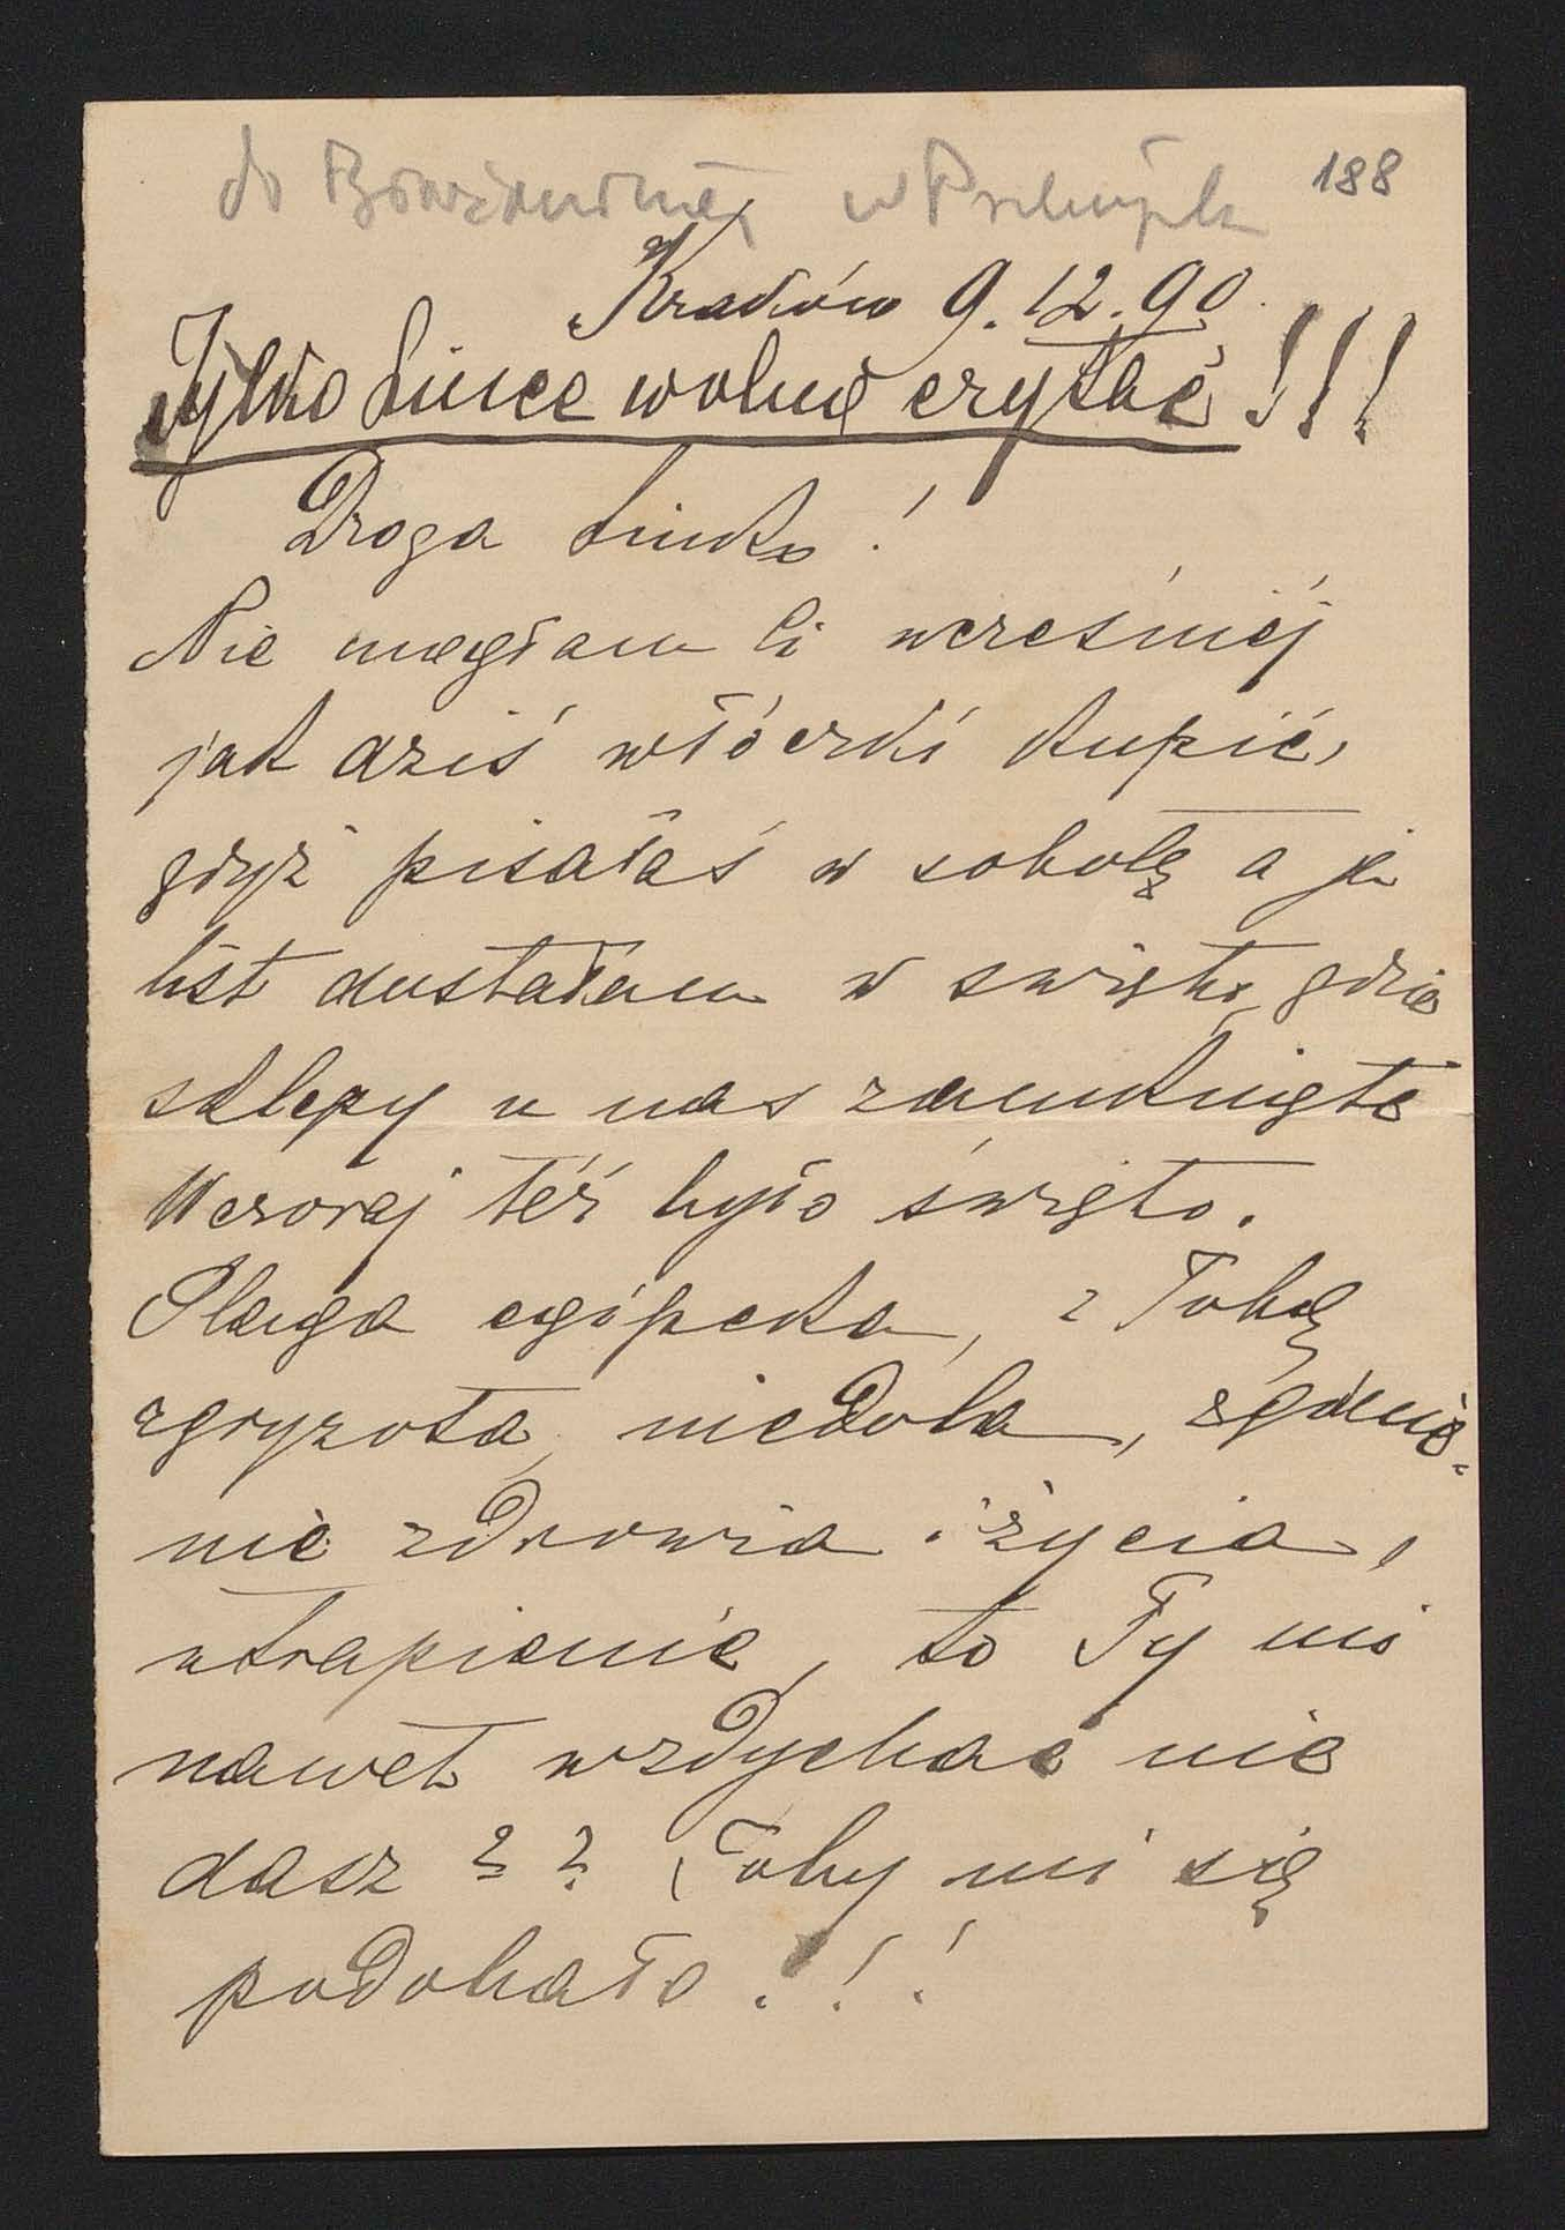 do w Przemyślu 188
Kraków 9.12.90.
Tylko Lince wolno czytać!!!
Droga Linko!
Nie mogłam Ci wcześniéj
jak dziś włóczki kupić,
gdyż pisałaś w sobotę a ja
list dostałam w święto gdzie
sklepy u nas zamknięte
Wczoraj téż było święto.
Plaga egipcka, z Tobą
zgryzota, niedola,
nie zdrowia i życia,
utrapienie, to Ty mi
nawet wzdychać nie
dasz?? Toby mi się
podobało!!!